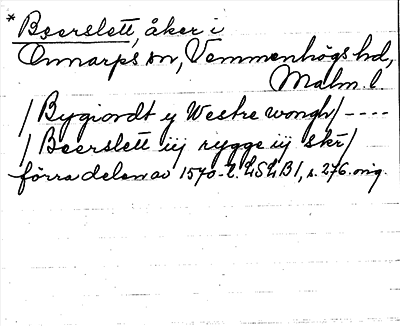 * Beerslett, åker i
Onnarps sn, Vemmenhögs hd,
Malm. l
/ Bygiordt y Westre wongh / ----
/ Beerslett iij rygge iij skr /
förra delen av 1570-t. LSLB1, s. 276. orig.